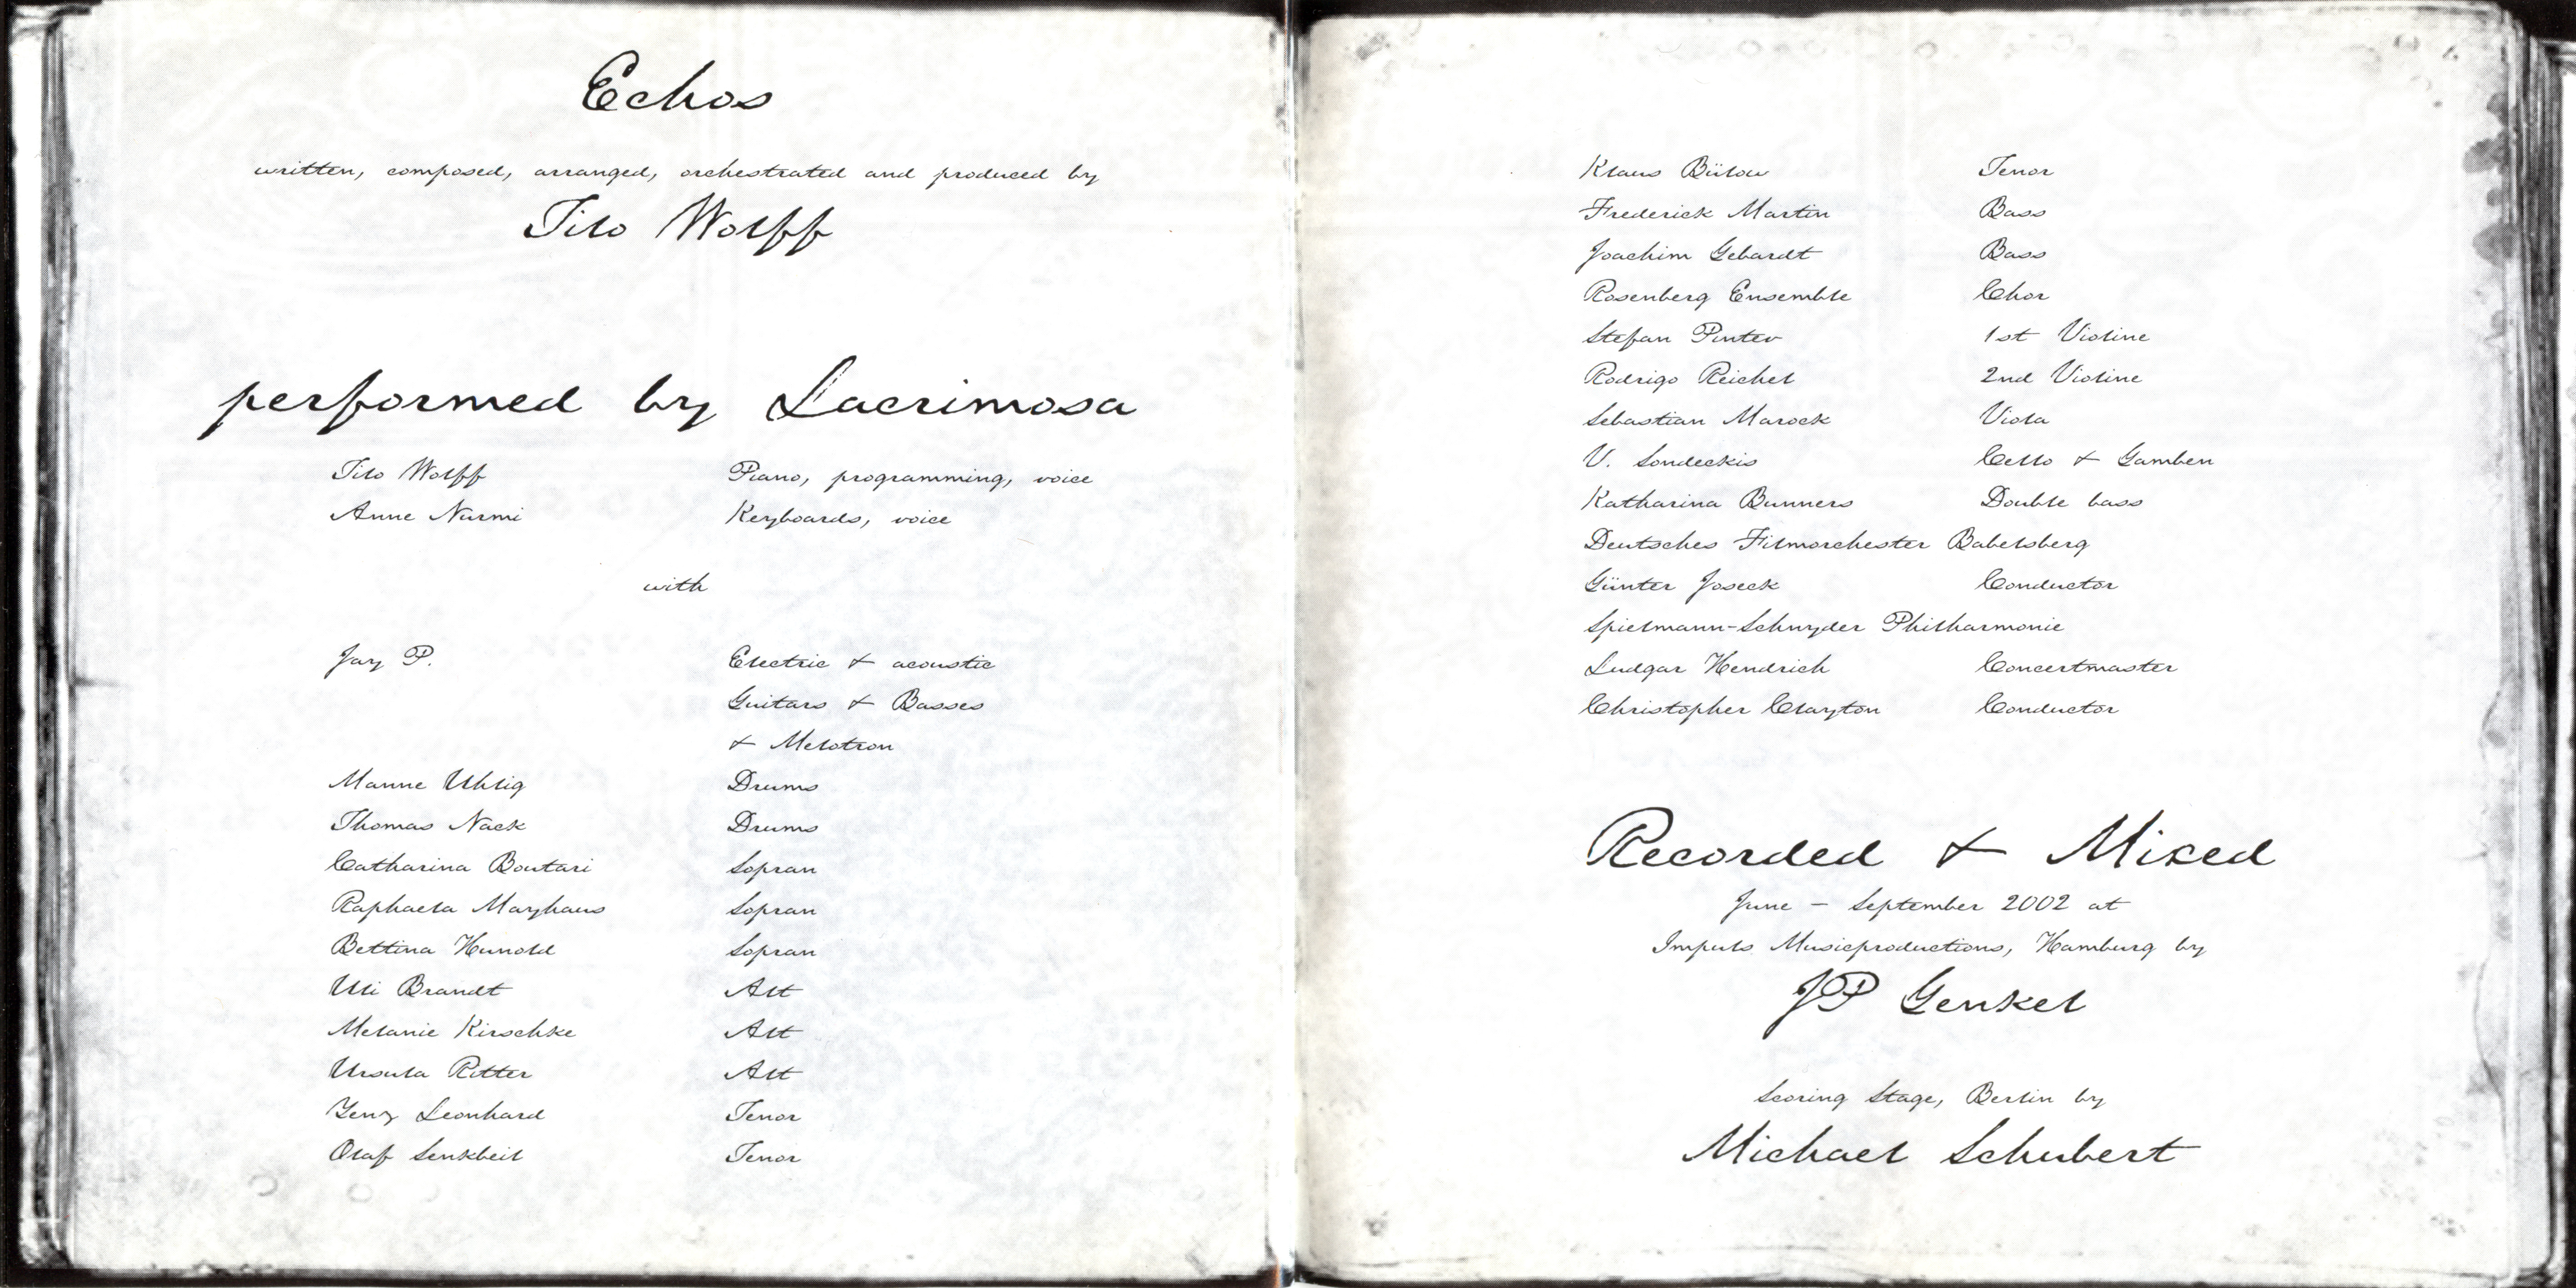 Echos
written, composed, arranged, orchestrated and produced by
Tilo Wolff
performed by Lacrimosa
Tilo Wolff Piano, programming, voice
Anne Nurmi Keyboards, voice
with
Jay P. Electric & acoustic
Guitars & Basses
& Melotron
Manne Uhlig Drums
Thomas Nack Drums
Catharina Boutari Sopran
Raphaela Mayhaus Sopran
Bettina Hunold Sopran
Uli Brandt Alt
Melanie Kirschke Alt
Ursula Ritter Alt
Yenz Leonhard Tenor
Olaf Senkbeil Tenor
Klaus Bülow Tenor
Frederick Martin Bass
Joachim Gebardt Bass
Rosenberg Ensemble Chor
Stefan Pintev 1st Violine
Rodrigo Reichel 2nd Violine
Sebastian Marock Viola
V. Sondeckis Cello & Gamben
Katharina Bunners Double bass
Deutsches Filmorchester Babelsberg
Günter Joseck Conductor
Spielmann-Schnyder Philharmonie
Ludgar Hendrich Concertmaster
Christopher Clayton Conductor
Recorded & Mixed
June - September 2002 at
Impuls Musicproductions, Hamburg by
JP Genkel
Scoring Stage, Berlin by
Michael Schubert